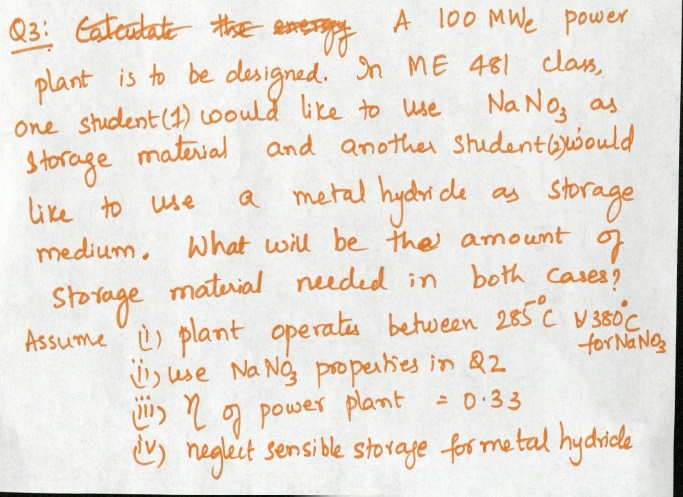 Q3: Calculate the energy A 100 MWe power
plant is to be designed. In ME 481 class,
one student (1) would like to use NaNO3 as
storage material and another student (2) would
like to use a metal hydride as storage
medium. What will be the amount of
storage material needed in both cases?
Assume (i) plant operates between 285°C & 380°C
for NaNO3
(ii) use NaNO3 properties in Q2
(iii) η of power plant = 0.33
(iv) neglect sensible storage for metal hydride